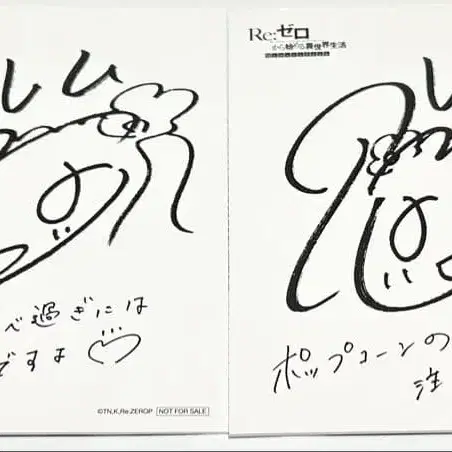 レム
べ過ぎには
ですよ
©TN,K,Re:ZEROP NOT FOR SALE
Re:ゼロ
から始める異世界生活
ポップコーンの
注